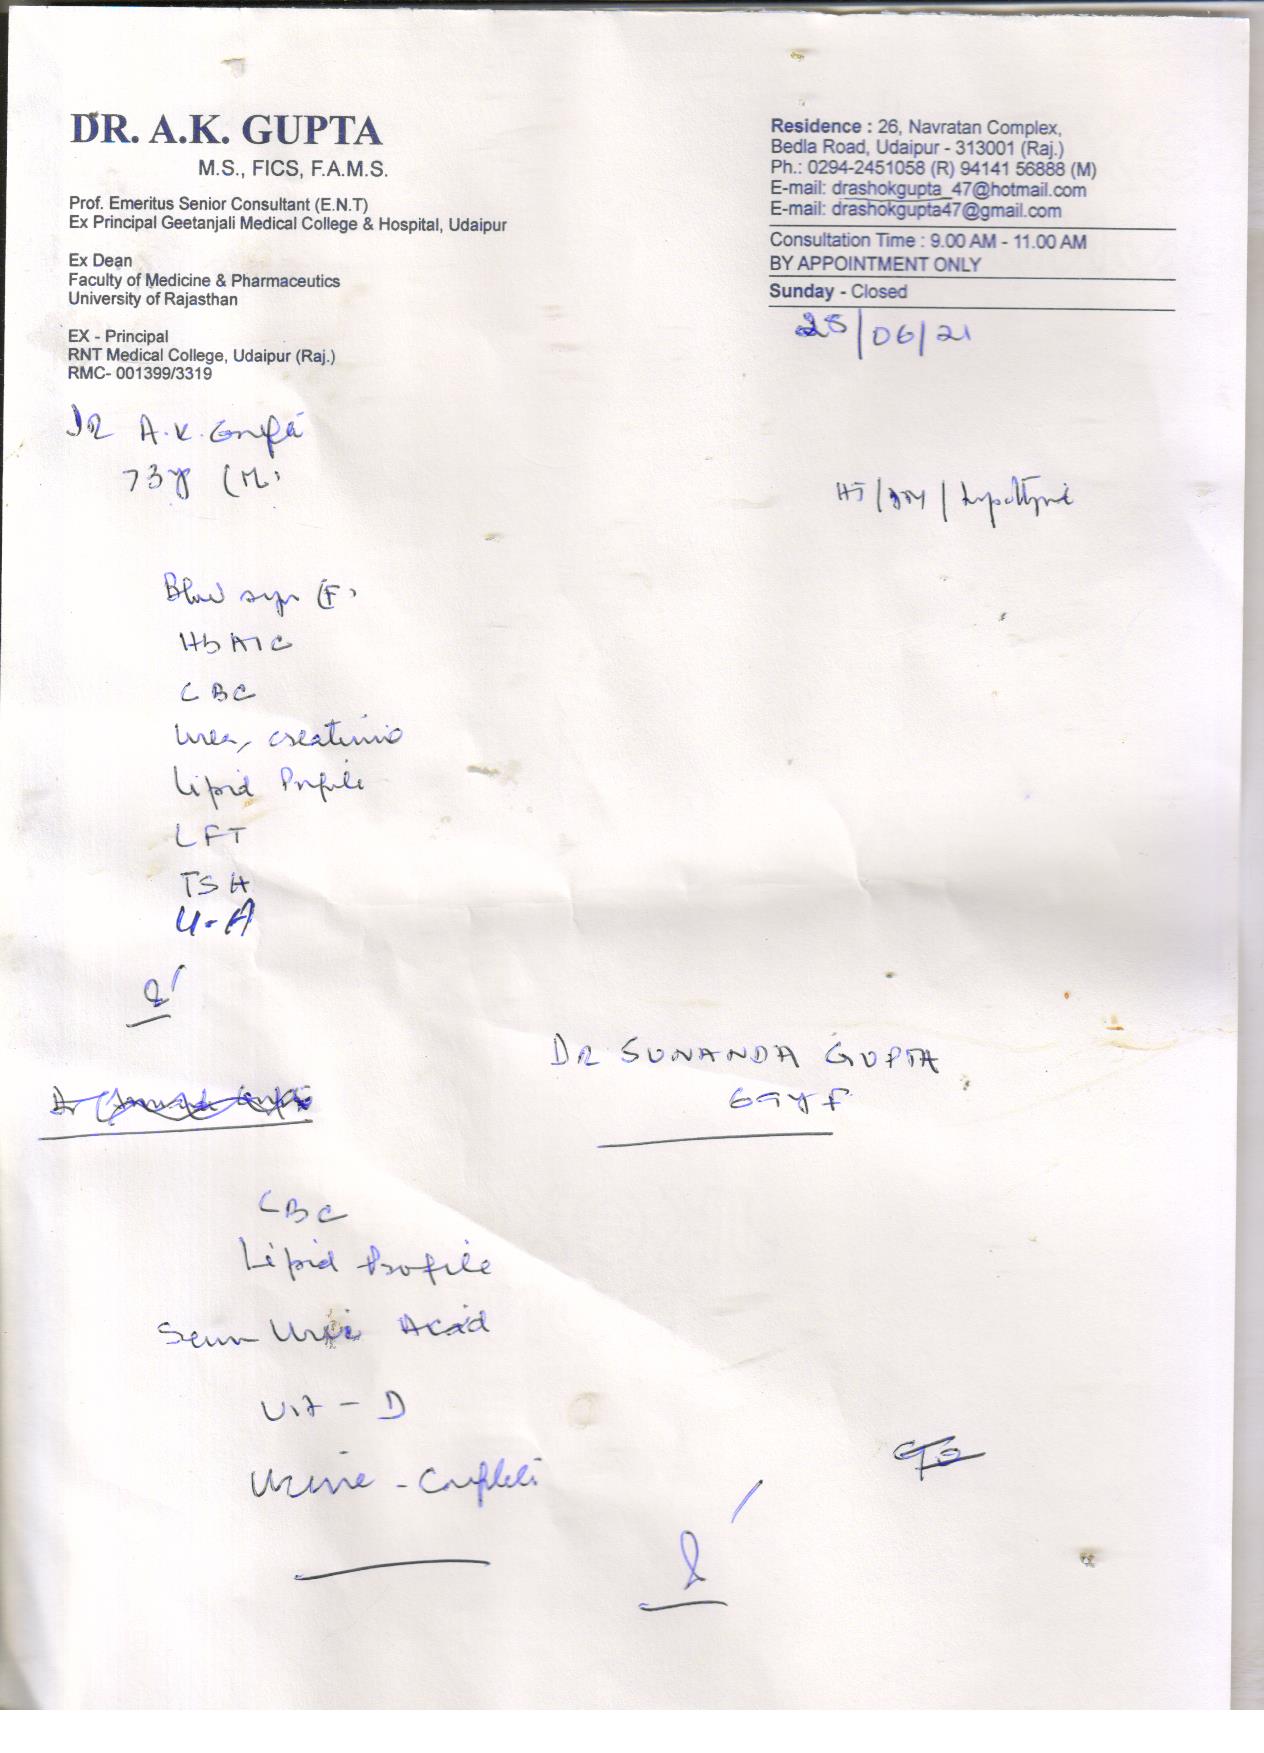 DR. A.K. GUPTA
M.S., FICS, F.A.M.S.
Prof. Emeritus Senior Consultant (E.N.T)
Ex Principal Geetanjali Medical College & Hospital, Udaipur
Ex Dean
Faculty of Medicine & Pharmaceutics
University of Rajasthan
EX - Principal
RNT Medical College, Udaipur (Raj.)
RMC- 001399/3319
Residence : 26, Navratan Complex,
Bedla Road, Udaipur - 313001 (Raj.)
Ph.: 0294-2451058 (R) 94141 56888 (M)
E-mail: drashokgupta_47@hotmail.com
E-mail: drashokgupta47@gmail.com
Consultation Time : 9.00 AM - 11.00 AM
BY APPOINTMENT ONLY
Sunday - Closed
25/06/21
Dr A.K. Gupta
73y (M)
Blood sugar (F)
HbA1C
CBC
Urea, creatinine
Lipid Profile
LFT
TSH
U-A
DR SUNANDA GUPTA
69y F
CBC
Lipid Profile
Serum Uric Acid
Vit - D
Urine - Complete